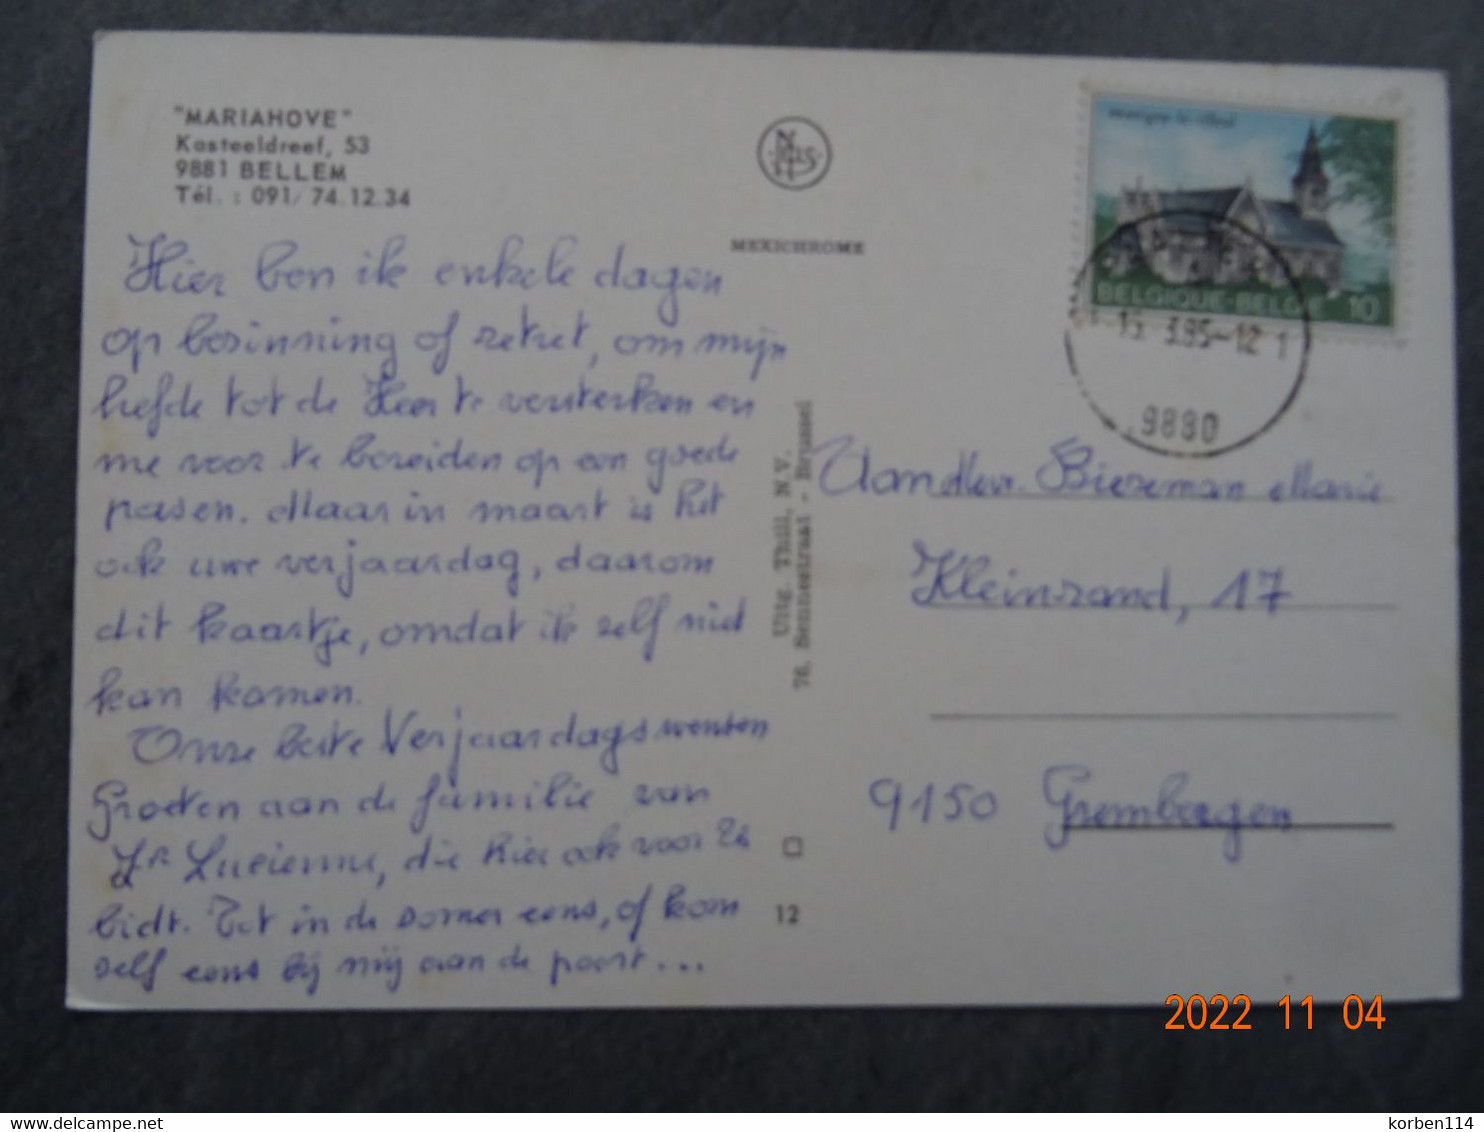 "MARIAHOVE"
Kasteeldreef, 53
9881 BELLEM
Tél. : 091/ 74.12.34
MEXICHROME
BELGIQUE-BELGIE 10
9880
Hier ben ik enkele dagen
op bezinning of retret, om mijn
liefde tot de Heer te versterken en
me voor te bereiden op een goede
pasen. Maar in maart is het
ook uwe verjaardag, daarom
dit kaartje, omdat ik zelf niet
kan komen.
Onze beste Verjaardagswensen
Groeten aan de familie van
Zr Lucienne, die hier ook voor
bidt. Tot in de zomer eens, of kom
zelf eens bij mij aan de poort...
Uitg. Thill, N.V.
76, - Brussel
12
Biereman Marie
Kleinzand, 17
9150 Grembergen
2022 11 04
www.delcampe.net
korben114